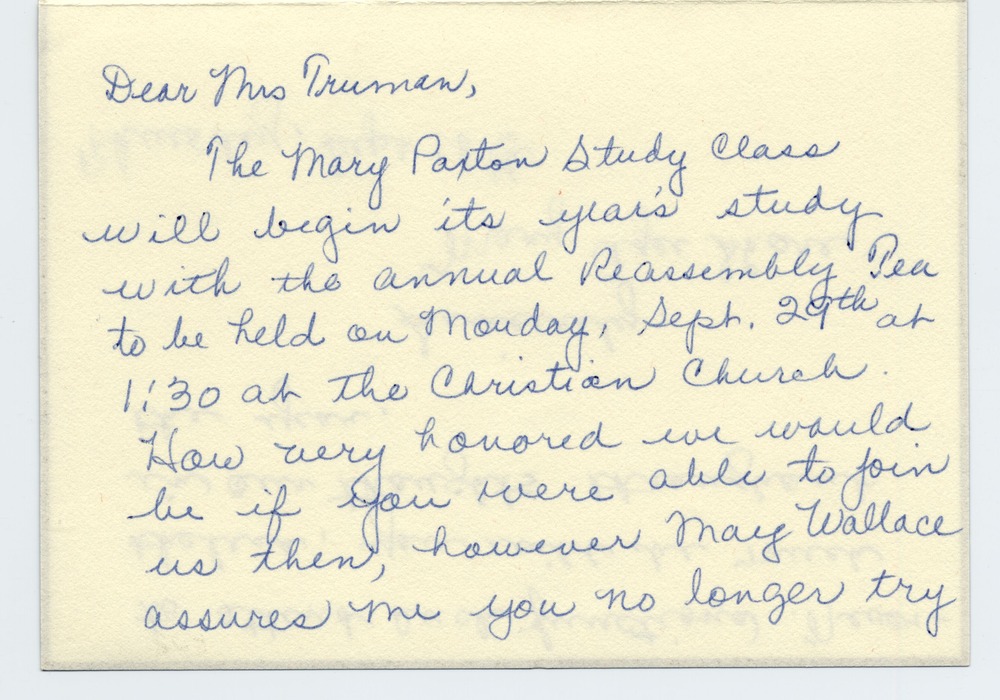 Dear Mrs Truman,
The Mary Paxton Study Class
will begin its year's study
with the annual Reassembly Tea
to be held on Monday, Sept. 29th at
1:30 at the Christian Church.
How very honored we would
be if you were able to join
us then, however May Wallace
assures me you no longer try